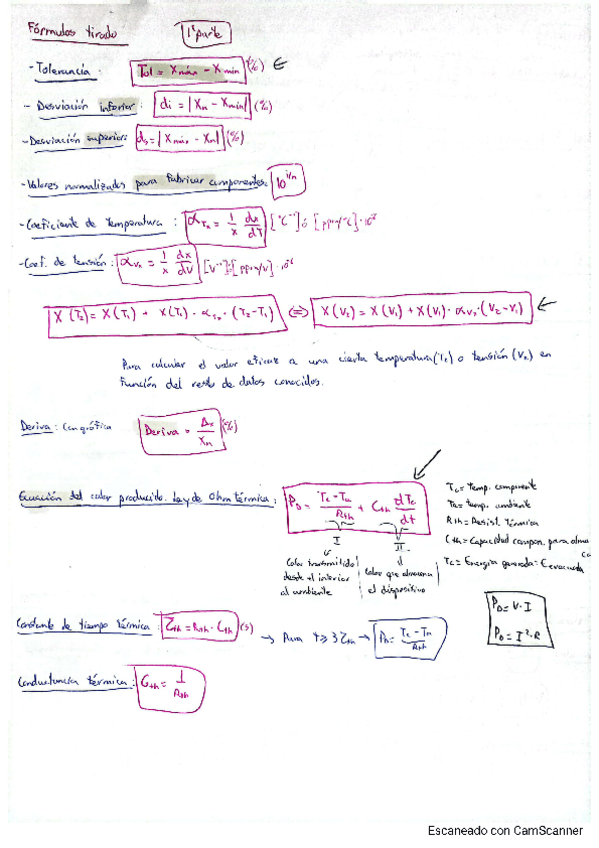 Fórmulas tirado 1ª parte
- Tolerancia : Tol = Xmáx - Xmin (%) ←
- Desviación inferior : di = |Xn - Xmin| (%)
- Desviación superior: ds = |Xmáx - Xn| (%)
- Valores normalizados para fabricar componentes: 10^1/n
- Coeficiente de temperatura : αTx = 1/x dx/dT [ºC⁻¹] ó [ppm/ºC]·10⁻⁶
- Coef. de tensión : αVx = 1/x dx/dV [V⁻¹] ó [ppm/V]·10⁻⁶
X(T2) = X(T1) + X(T1) · αTx · (T2 - T1) ⟺ X(V2) = X(V1) + X(V1) · αVx · (V2 - V1) ←
Para calcular el valor eficaz a una cierta temperatura (Tx) o tensión (Vx) en
función del resto de datos conocidos.
Deriva : Con gráfica Deriva = Δx/Xn (%)
Ecuación del calor producido. Ley de Ohm térmica : PD = Tc - Ta/Rth + Cth dTc/dt
I II
Calor transmitido desde el interior al ambiente
Calor que almacena el dispositivo
Tc = Temp. componente
Ta = temp. ambiente
Rth = Resist. térmica
Cth = Capacidad compon. para alma
Tc = Energía generada = Eevacuada
PD = V · I
PD = I² · R
Constante de tiempo térmica : Zth = Rth · Cth (s) → Para t ≥ 3Zth → PD = Tc - Ta/Rth
Conductancia térmica : Gth = 1/Rth
Escaneado con CamScanner